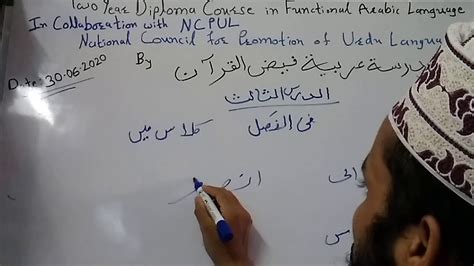 Two Year Diploma Course in Functional Arabic Language
In Collaboration with NCPUL
National Council for Promotion of Urdu Language
Date: 30.06.2020
By
مدرسة عربية فيض القرآن
الدرس الثالث
فی الفصل
کلاس میں